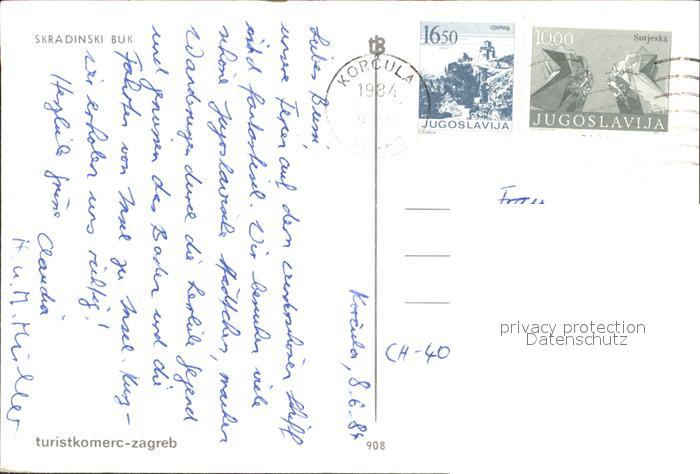 SKRADINSKI BUK
Korčula, 8.6.84
Liebes Bussi
unsere Ferien auf dem wunderschönen Schiff
sind fantastisch. Wir besuchen viele
schöne jugoslawische Städtchen, machen
Wanderungen durch die herrliche Gegend
und geniessen das Baden und die
Fahrten von Insel zu Insel. Kurz-
wir erholen uns richtig!
Herzliche Grüsse Claudia
H. u. M. Müller
turistkomerc-zagreb
908
tB
KORČULA
1984
16.50
ОХРИД
JUGOSLAVIJA
10.00
Sutjeska
JUGOSLAVIJA
CH-40
privacy protection
Datenschutz